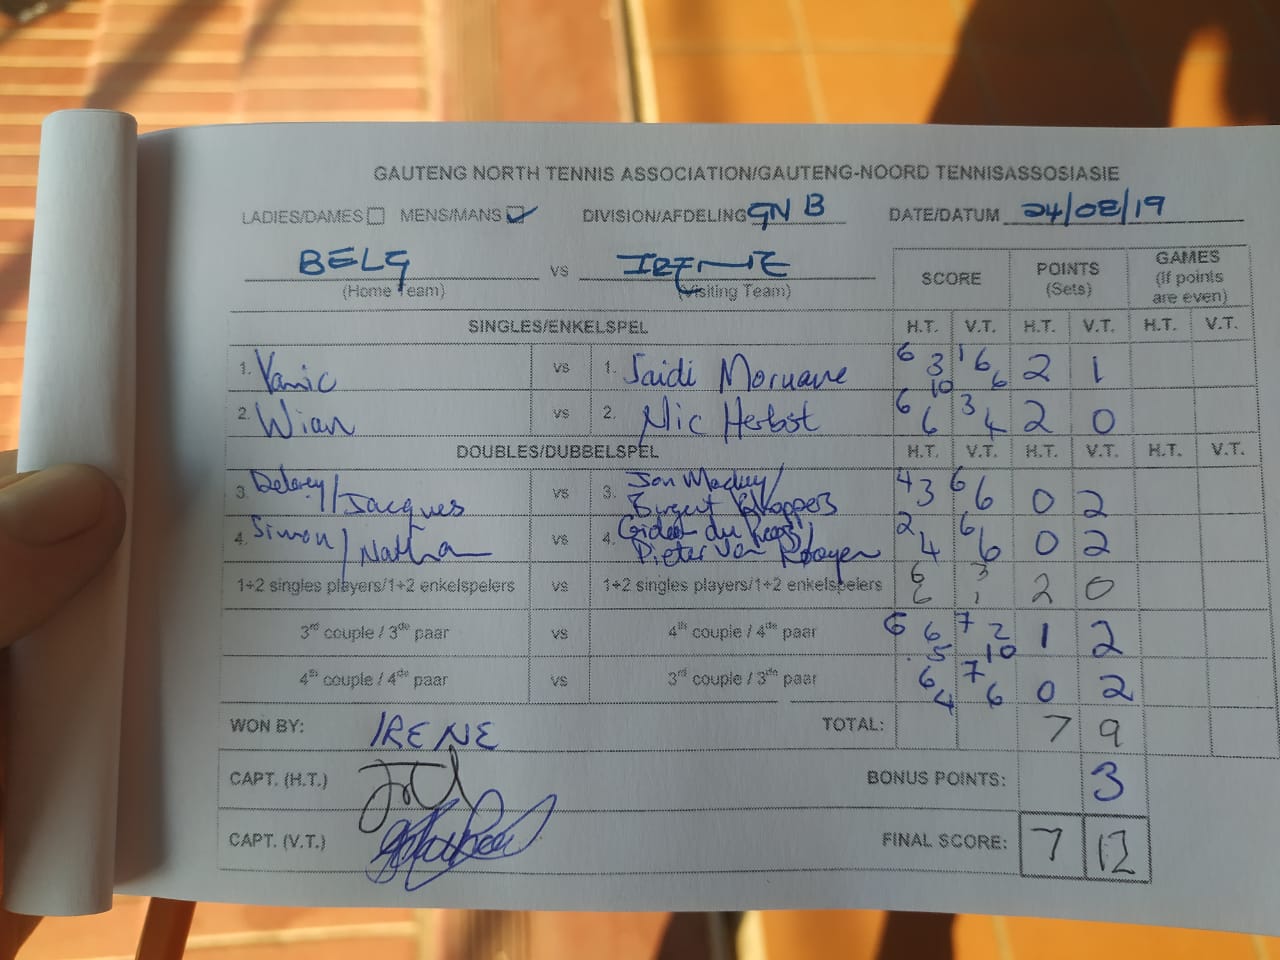 GAUTENG NORTH TENNIS ASSOCIATION/GAUTENG-NOORD TENNISASSOSIASIE
LADIES/DAMES MENS/MANS DIVISION/AFDELING GN B DATE/DATUM 24/08/19
BELG vs IRENE
(Home Team) (Visiting Team)
SCORE POINTS (Sets) GAMES (If points are even)
SINGLES/ENKELSPEL H.T. V.T. H.T. V.T. H.T. V.T.
1. Yanic vs 1. Saidi Moruane 6 3 10 1 6 6 2 1
2. Wian vs 2. Nic Herbst 6 6 3 4 2 0
DOUBLES/DUBBELSPEL H.T. V.T. H.T. V.T. H.T. V.T.
3. Delarey/Jacques vs 3. Jon 4 3 6 6 0 2
4. Simon/Nathan vs 4. Gideon du / Pieter van 2 4 6 6 0 2
1+2 singles players/1+2 enkelspelers vs 1+2 singles players/1+2 enkelspelers 6 6 3 1 2 0
3rd couple / 3de paar vs 4th couple / 4de paar 6 6 5 7 2 10 1 2
4th couple / 4de paar vs 3rd couple / 3de paar 6 4 7 6 0 2
WON BY: IRENE TOTAL: 7 9
CAPT. (H.T.) BONUS POINTS: 3
CAPT. (V.T.) FINAL SCORE: 7 12